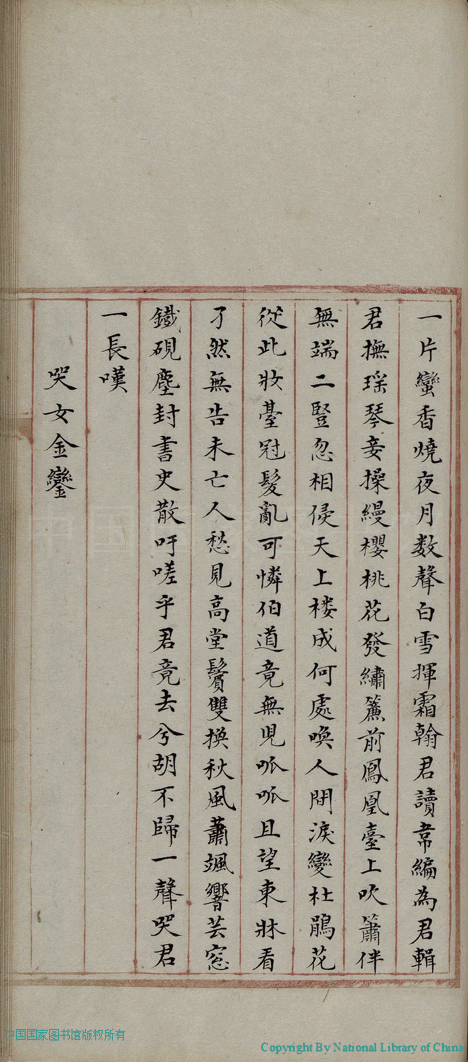 一片蠻香燒夜月数聲白雪揮霜翰君讀韋編為君輯
君撫瑶琴妾操縵櫻桃花發繡簾前鳳凰臺上吹簫伴
無端二豎忽相侵天上楼成何處喚人間淚變杜鵑花
從此妝臺冠髮亂可憐伯道竟無兒呱呱且望東牀看
孑然無告未亡人愁見高堂鬢雙換秋風蕭颯響芸窓
鐵硯塵封書史散吁嗟乎君竟去兮胡不歸一聲哭君
一長嘆
哭女金鑾
中国国家图书馆版权所有
Copyright By National Library of China